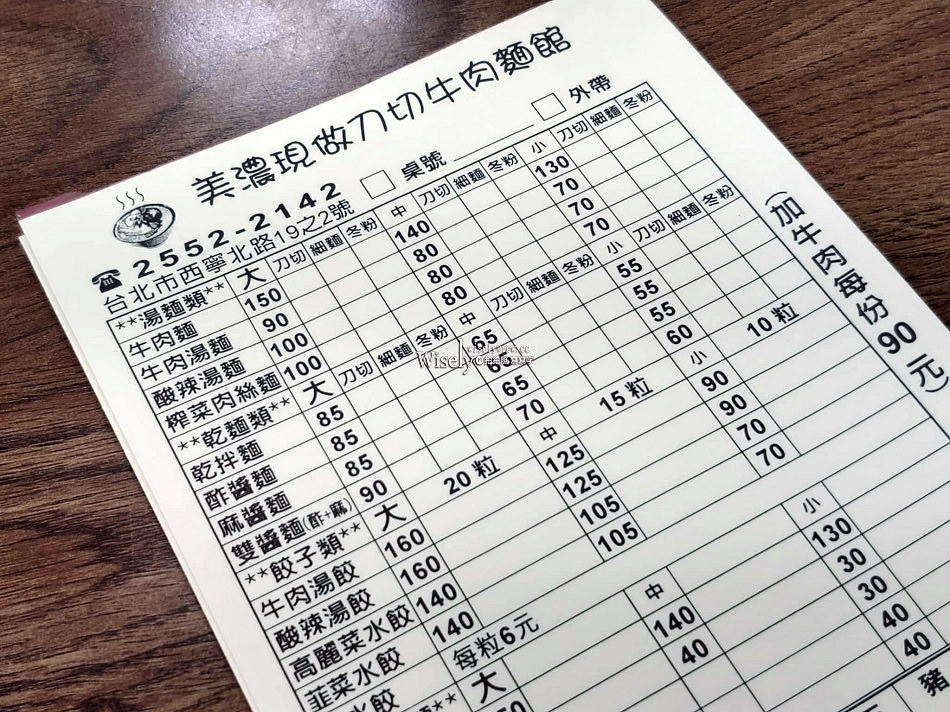 美濃現做刀切牛肉麵館
☎2552-2142 □ 桌號______ □ 外帶
台北市西寧北路19之2號
**湯麵類** 大 刀切 細麵 冬粉 中 刀切 細麵 冬粉 小 刀切 細麵 冬粉
牛肉麵 150 140 130
牛肉湯麵 90 80 70
酸辣湯麵 100 80 70
榨菜肉絲麵 100 80 70
**乾麵類** 大 刀切 細麵 冬粉 中 刀切 細麵 冬粉 小 刀切 細麵 冬粉
乾拌麵 85 65 55
酢醬麵 85 65 55
麻醬麵 85 65 55
雙醬麵(酢+麻) 90 70 60
**餃子類** 大 20粒 中 15粒 小 10粒
牛肉湯餃 160 125 90
酸辣湯餃 160 125 90
高麗菜水餃 140 105 70
韮菜水餃 140 105 70
水餃 每粒6元
** 大 中 小
140 130
40 30
30
40
40
豬
(加牛肉每份90元)
Wisely